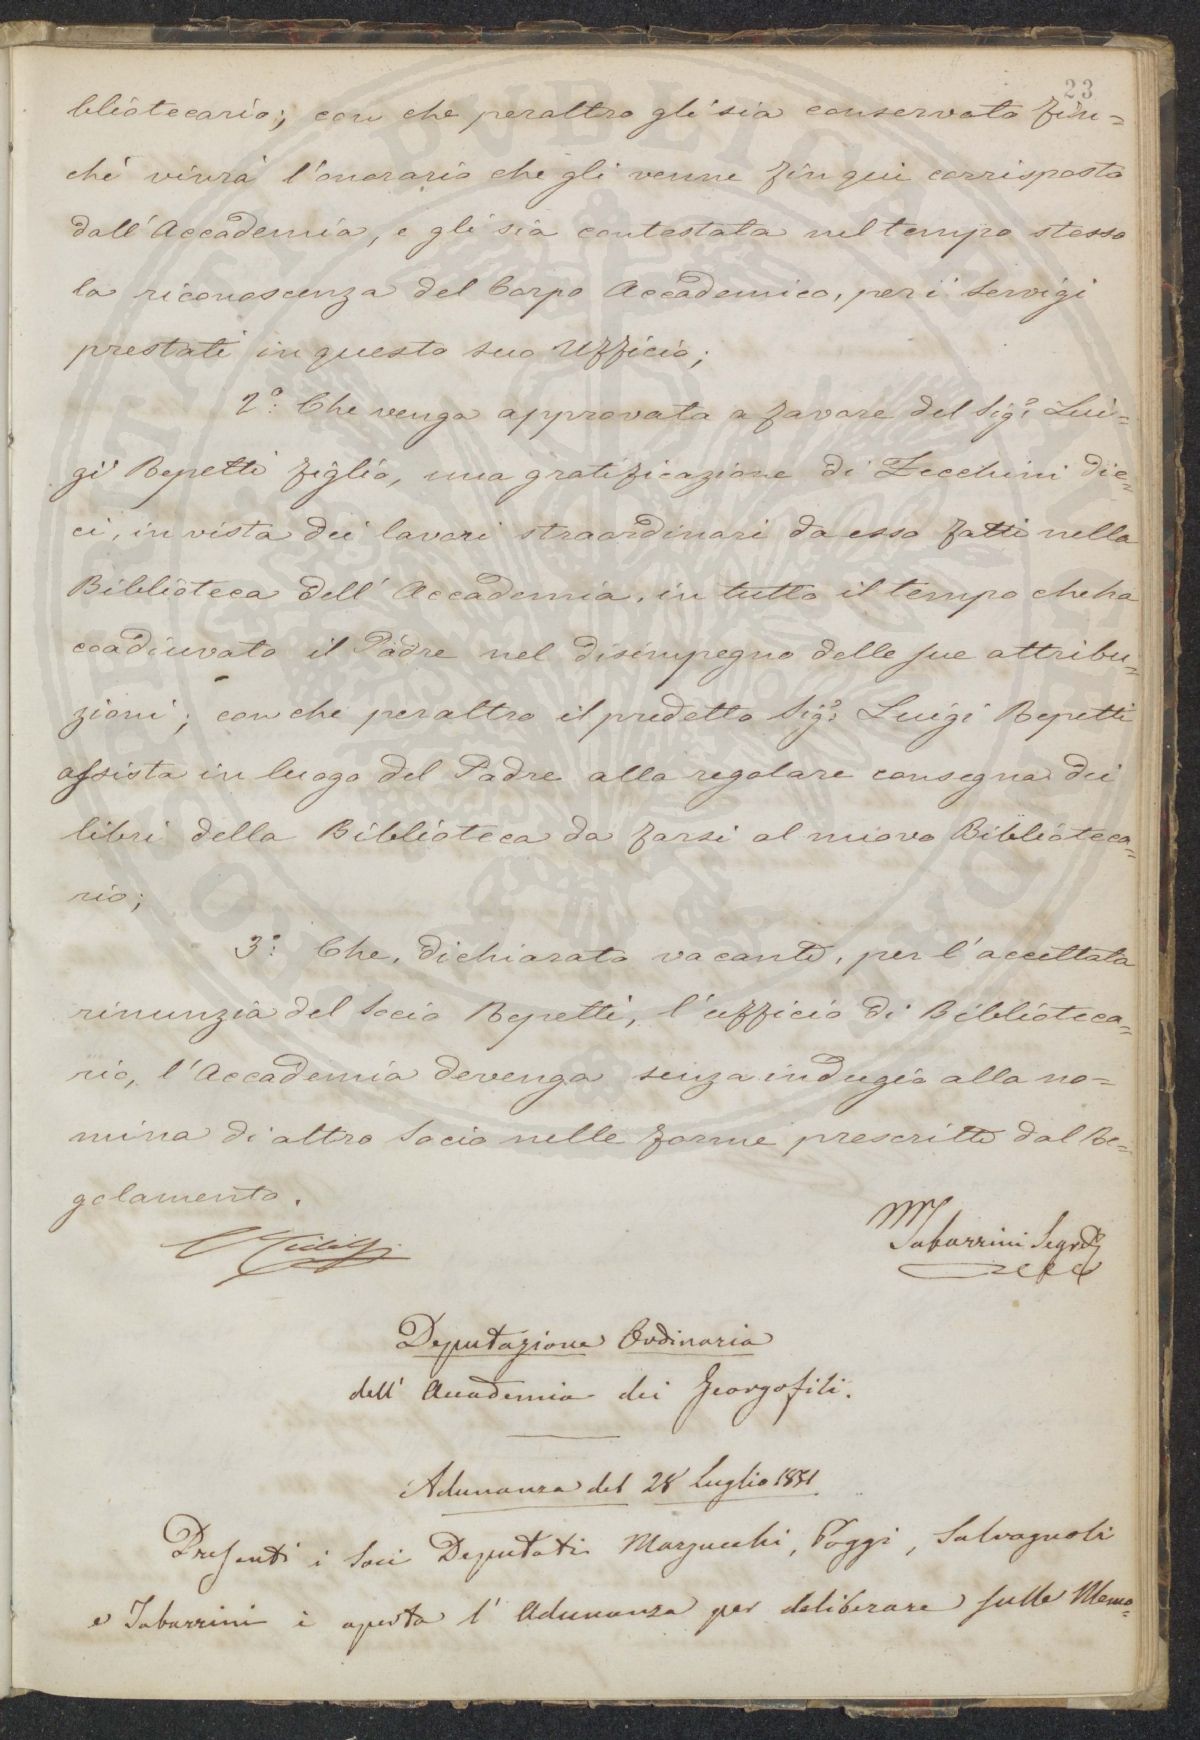 23
bliotecario; con che peraltro gli sia conservato fin=
ché vivrà l'onorario che gli venne fin qui corrisposto
dall'Accademia, e gli sia contestata nel tempo stesso
la riconoscenza del Corpo Accademico, per i servigi
prestati in questo suo Ufficio;
2.° Che venga approvata a favore del Sig.r Lui=
gi Repetti figlio, una gratificazione di Zecchini die=
ci, in vista dei lavori straordinari da esso fatti nella
Biblioteca dell'Accademia, in tutto il tempo che ha
coadiuvato il Padre nel disimpegno delle sue attribu=
zioni; con che peraltro il predetto Sig.r Luigi Repetti
assista in luogo del Padre alla regolare consegna dei
libri della Biblioteca da farsi al nuovo Biblioteca=
rio;
3.° Che, dichiarato vacante, per l'accettata
rinunzia del Socio Repetti, l'ufficio di Biblioteca=
rio, l'Accademia devenga senza indugio alla no=
mina di altro Socio nelle forme prescritte dal Re=
golamento.
C Ridolfi
M Tabarrini Segret.
Deputazione Ordinaria
dell'Accademia dei Georgofili.
Adunanza del 28 Luglio 1851
Presenti i Soci Deputati Marzucchi, Poggi, Salvagnoli
e Tabarrini è aperta l'Adunanza per deliberare sulle Memo=